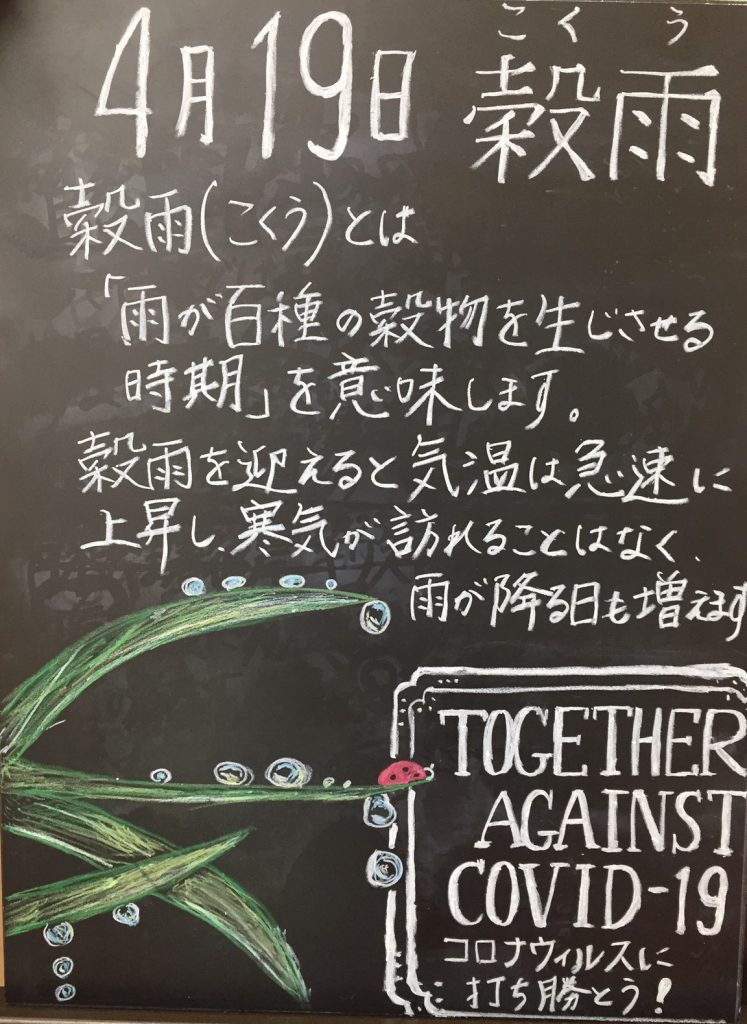 こくう
4月19日 穀雨
穀雨(こくう)とは
「雨が百種の穀物を生じさせる
時期」を意味します。
穀雨を迎えると気温は急速に
上昇し、寒気が訪れることはなく、
雨が降る日も増えます
TOGETHER
AGAINST
COVID-19
コロナウィルスに
打ち勝とう!